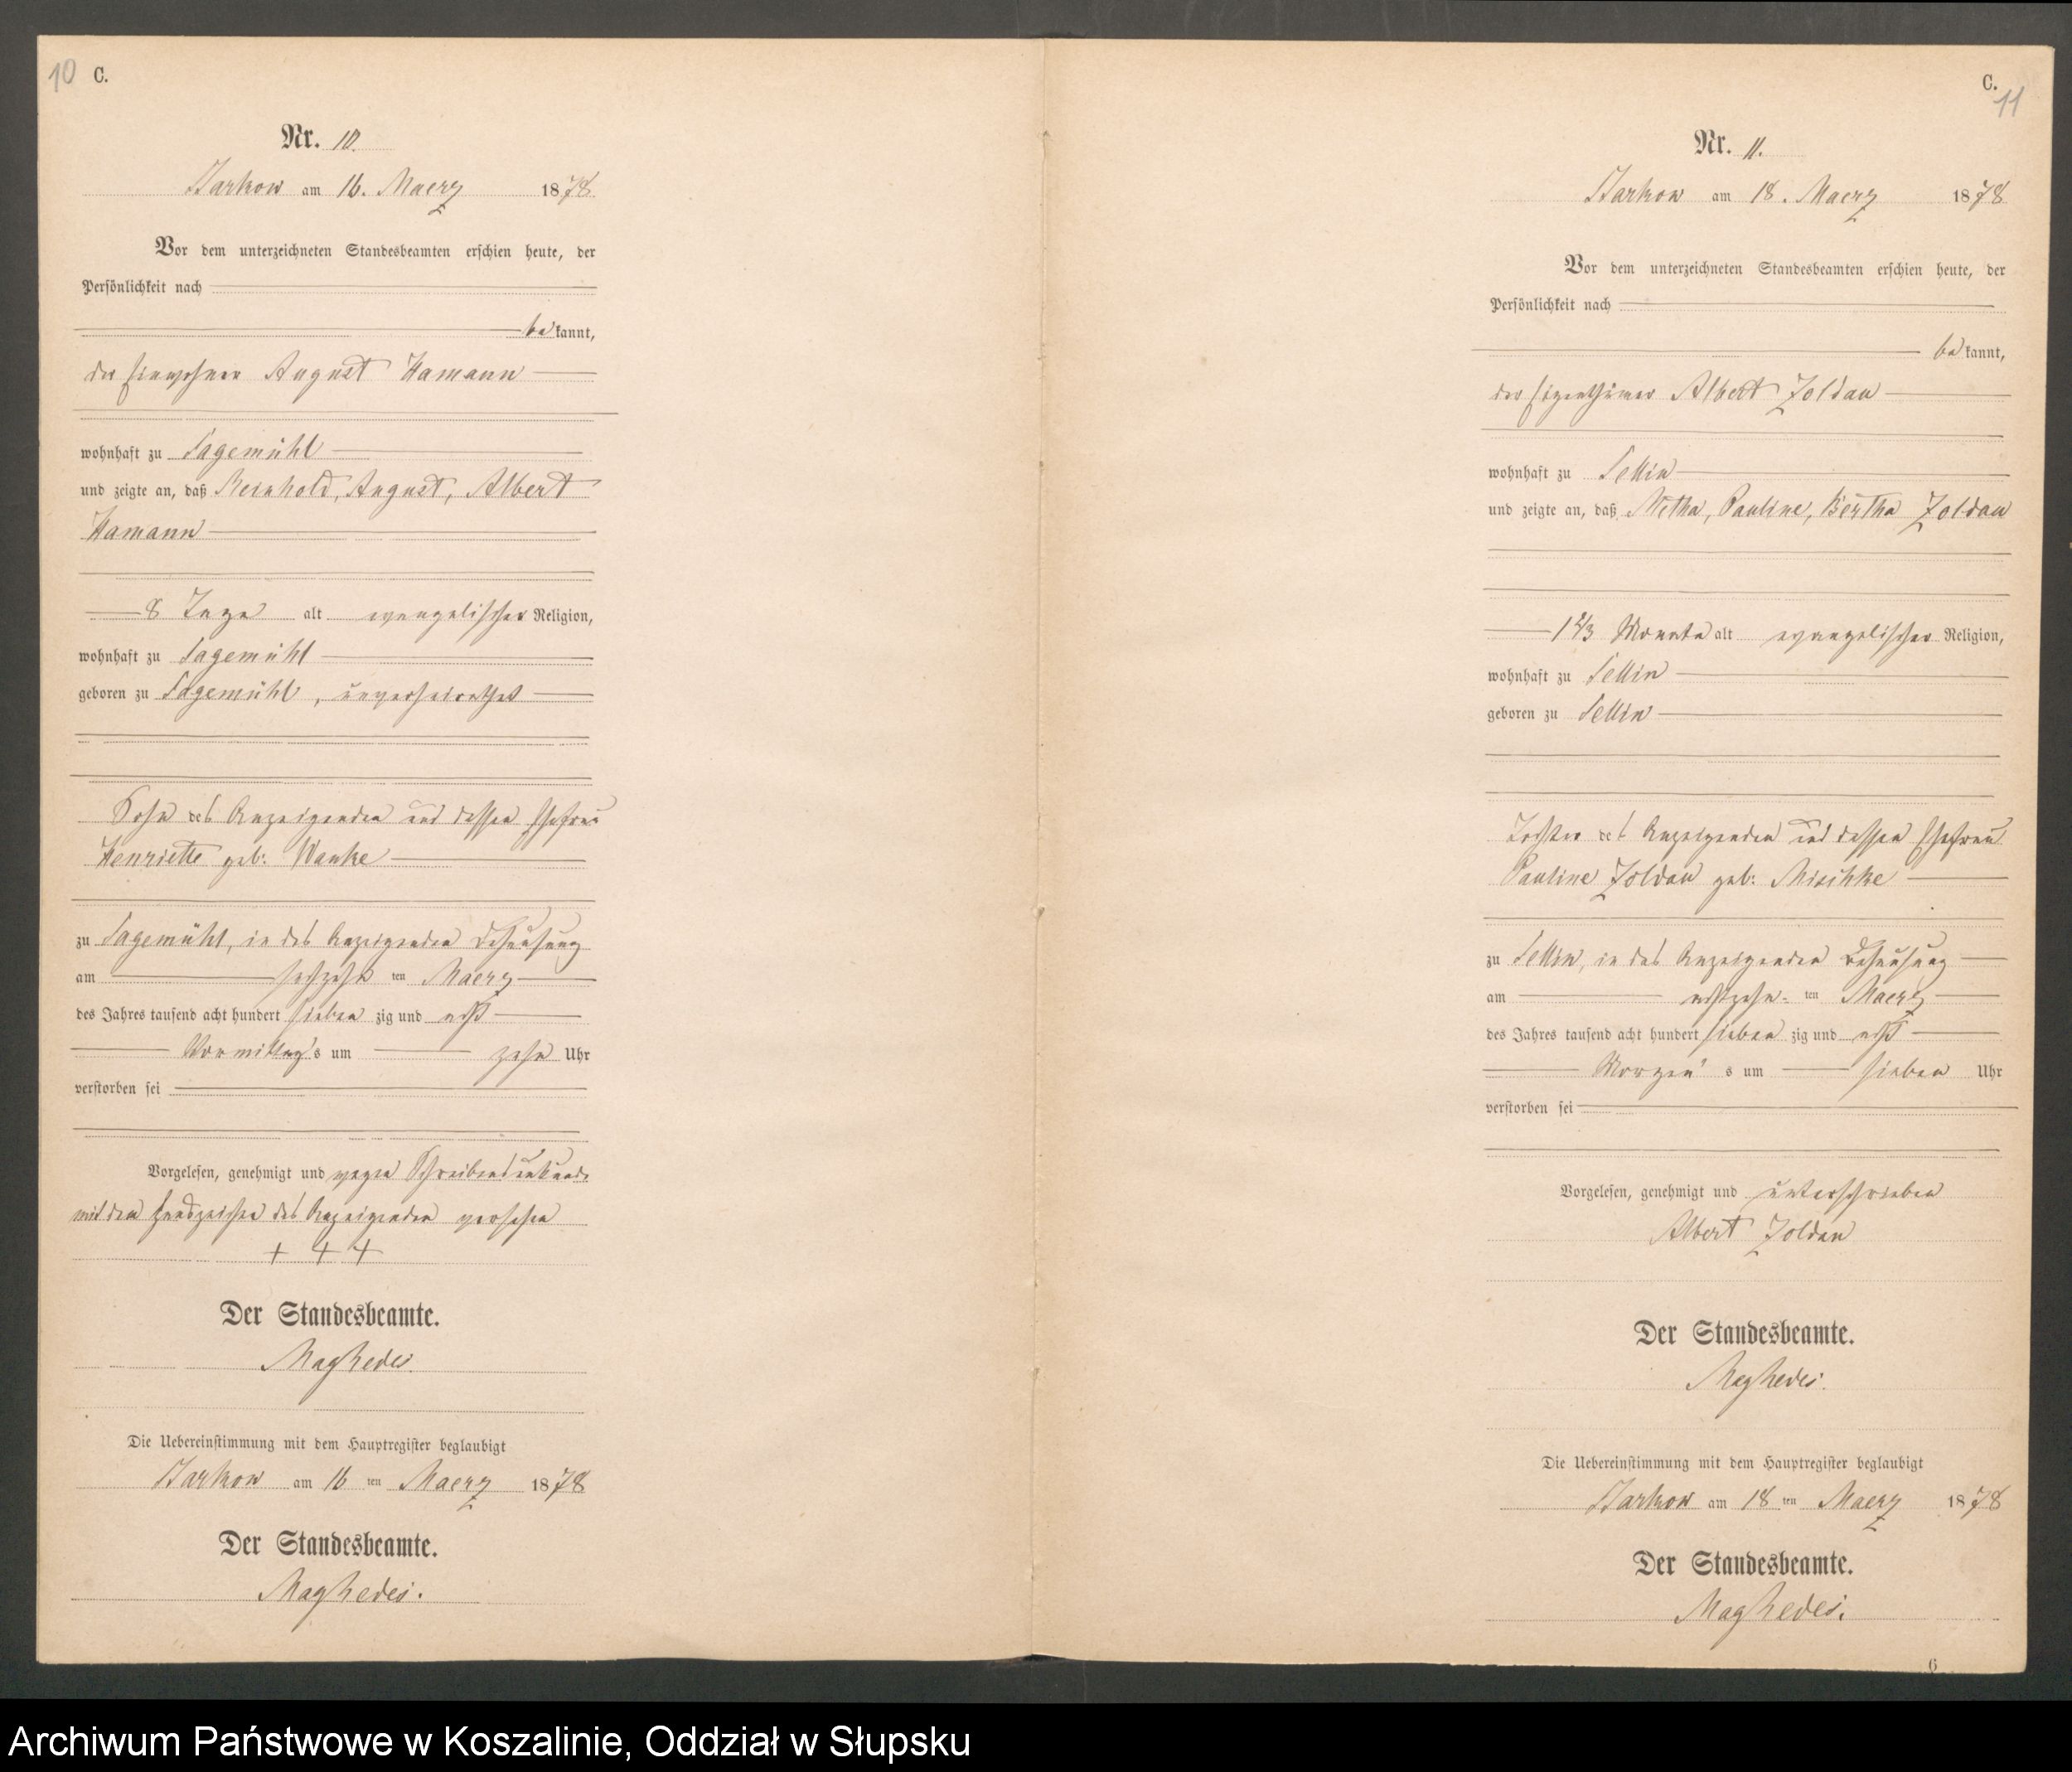 10 C.
Nr. 10.
Starkow am 16. Maerz 1878
Vor dem unterzeichneten Standesbeamten erschien heute, der
Persönlichkeit nach
bekannt,
der Einwohner August Hamann
wohnhaft zu Sagemühl
und zeigte an, daß Reinhold, August, Albert
Hamann
8 Tage alt evangelischer Religion,
wohnhaft zu Sagemühl
geboren zu Sagemühl, unverheirathet
Sohn des Anzeigenden und dessen Ehefrau
Henriette geb: Wanke
zu Sagemühl, in des Anzeigenden Behausung
am sechzehn ten Maerz
des Jahres tausend acht hundert sieben zig und acht
Vormittags um zehn Uhr
verstorben sei
Vorgelesen, genehmigt und wegen Schreibensunkunde
mit den Handzeichen des Anzeigenden versehen
+ + +
Der Standesbeamte.
Die Uebereinstimmung mit dem Hauptregister beglaubigt
Starkow am 16 ten Maerz 1878
Der Standesbeamte.
C.
11
Nr. 11.
Starkow am 18. Maerz 1878
Vor dem unterzeichneten Standesbeamten erschien heute, der
Persönlichkeit nach
bekannt,
der Eigenthümer Albert Zoldan
wohnhaft zu Sellin
und zeigte an, daß Metha, Pauline, Bertha Zoldan
1 2/3 Monate alt evangelischer Religion,
wohnhaft zu Sellin
geboren zu Sellin
Tochter des Anzeigenden und dessen Ehefrau
Pauline Zoldan geb: Mischke
zu Sellin, in des Anzeigenden Behausung
am achtzehn- ten Maerz
des Jahres tausend acht hundert sieben zig und acht
Morgen's um sieben Uhr
verstorben sei
Vorgelesen, genehmigt und unterschrieben
Albert Zoldan
Der Standesbeamte.
Die Uebereinstimmung mit dem Hauptregister beglaubigt
Starkow am 18 ten Maerz 1878
Der Standesbeamte.
6
Archiwum Państwowe w Koszalinie, Oddział w Słupsku